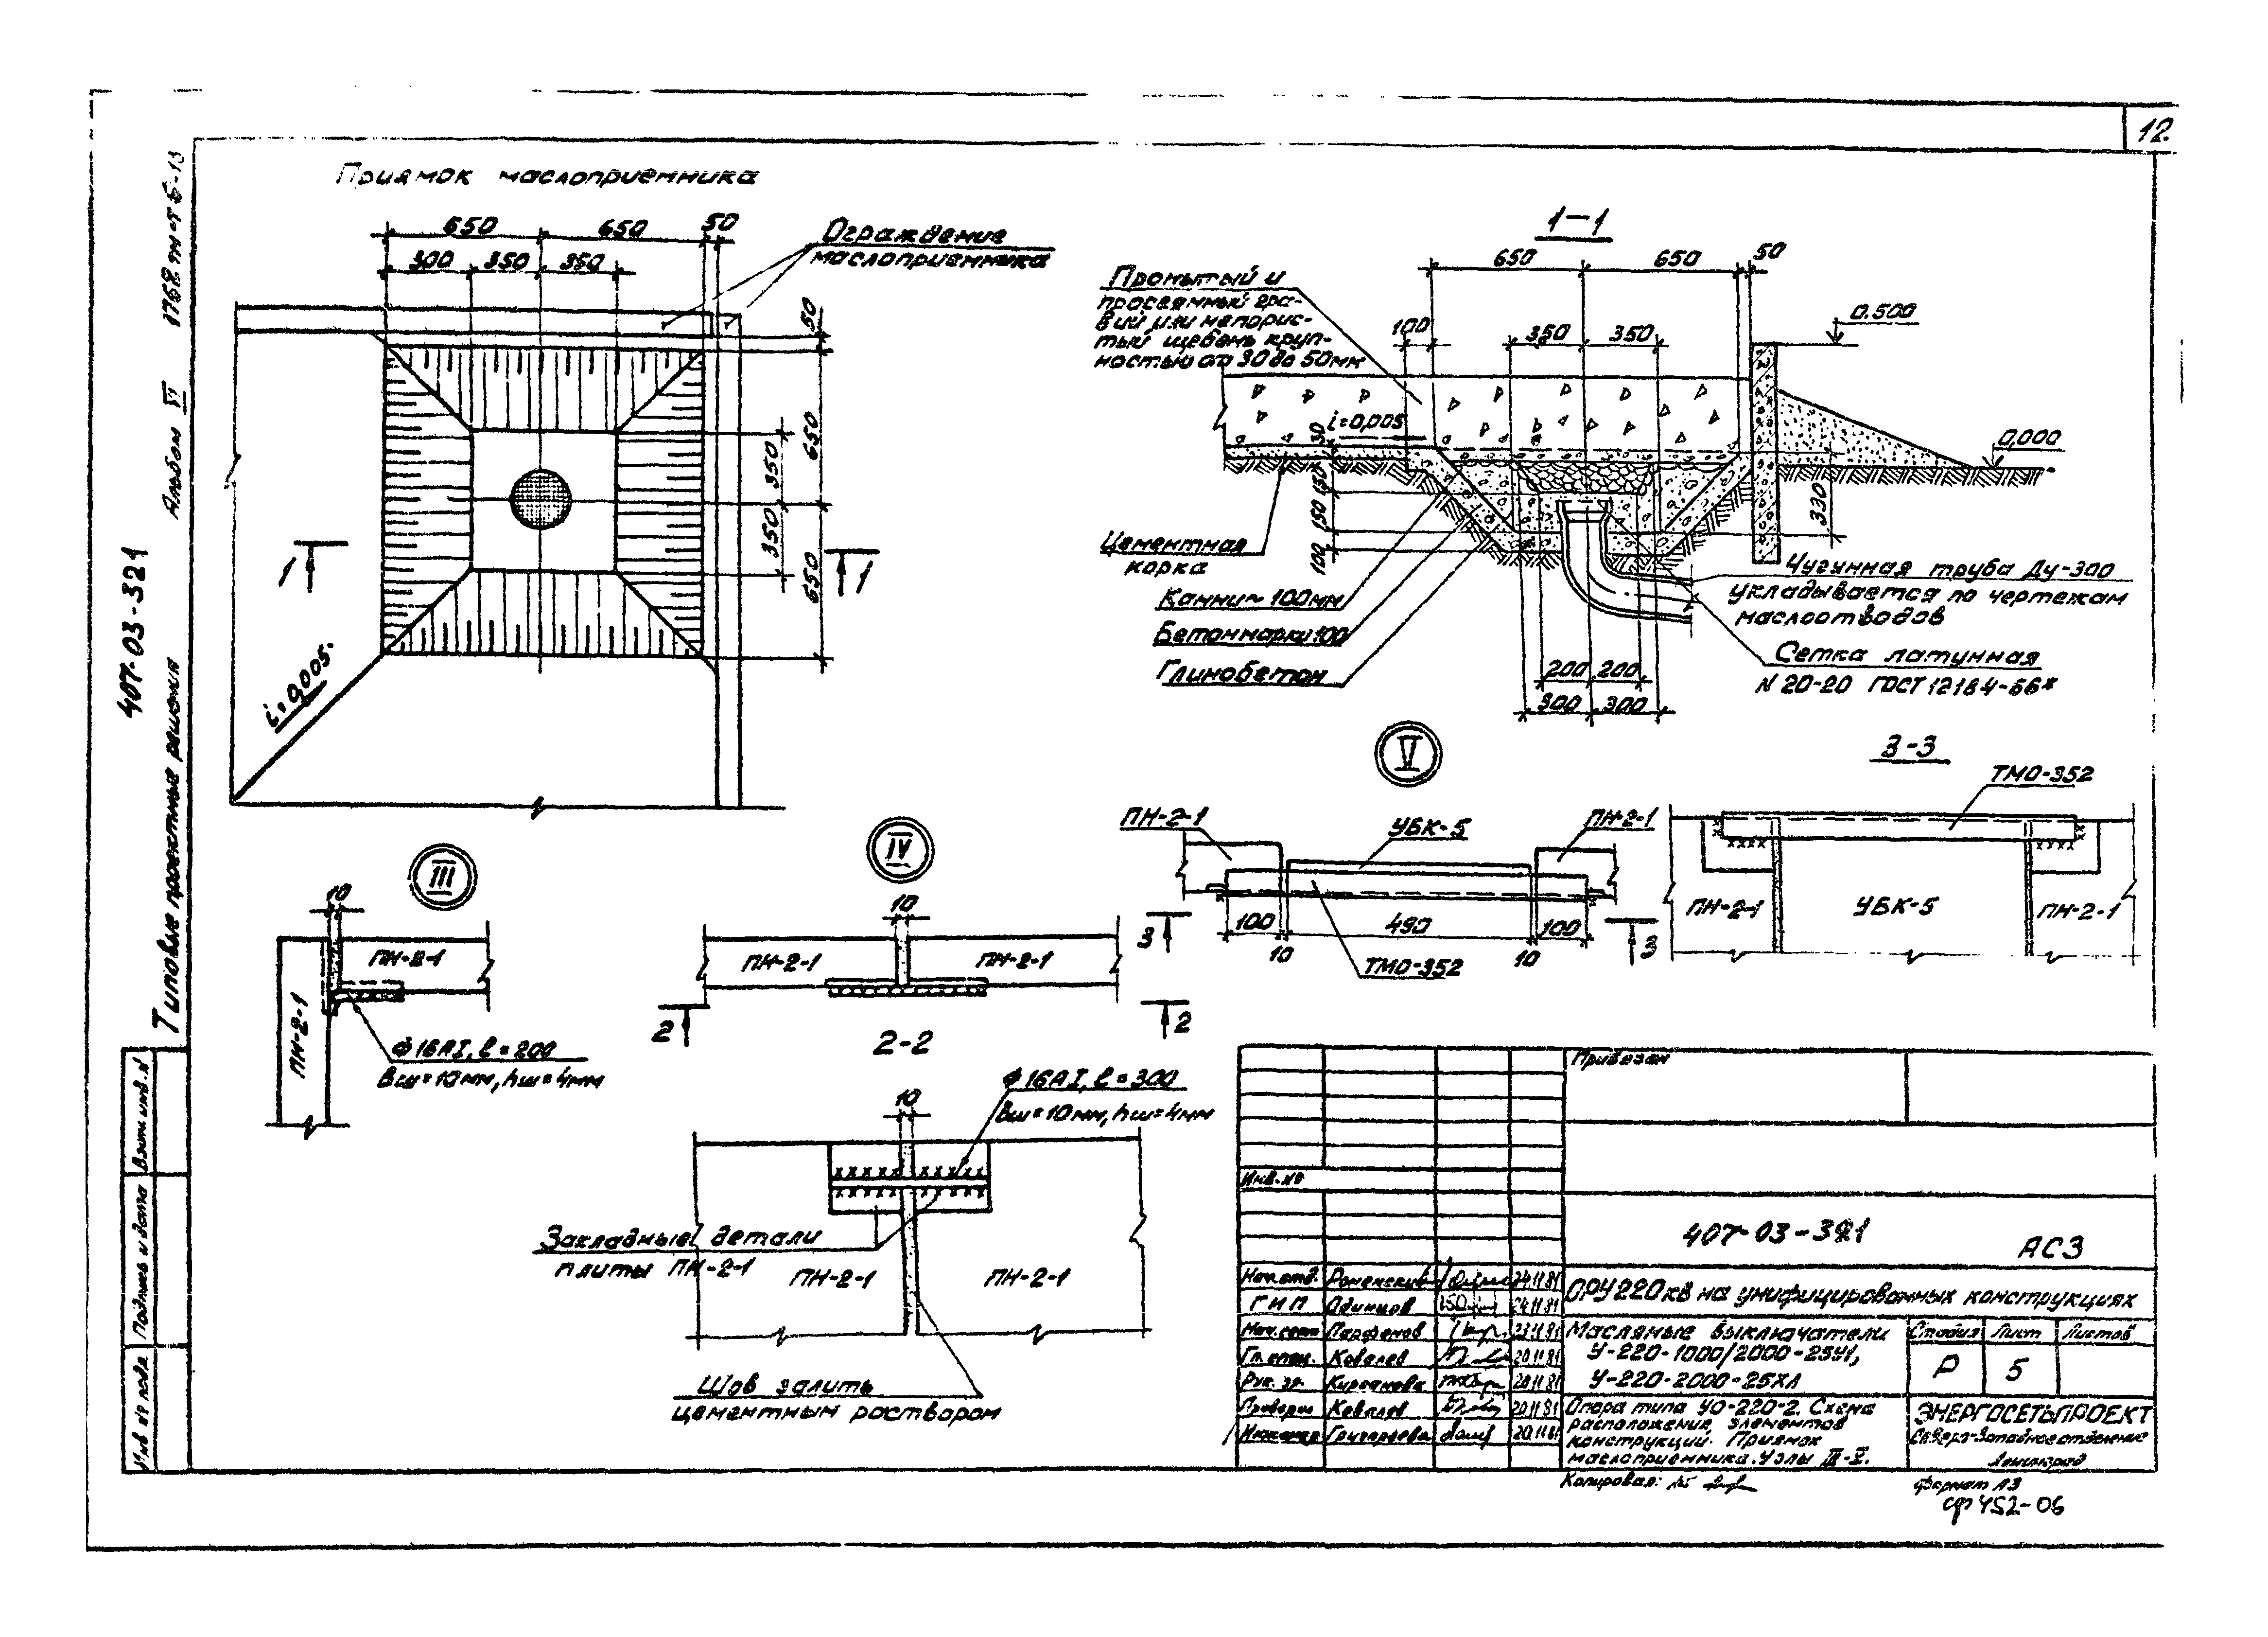 12.
407-03-321
Типовые проектные решения
Альбом VI
Приямок маслоприемника
650
650
50
300
350
350
Ограждение
маслоприемника
50
650
350
350
650
1
1
i=0,005.
1-1
650
650
50
100
350
350
Промытый и
просеянный гра-
вий или непорис-
тый щебень круп-
ностью от 30 до 50мм
0.500
0,000
i=0,005
30
150
150
100
330
Цементная
корка
Камни ~ 100мм
Бетон марки 100
Глинобетон
Чугунная труба Ду-300
укладывается по чертежам
маслоотводов
Сетка латунная
N 20-20 ГОСТ 12184-66*
200
200
300
300
III
10
ПН-2-1
ПН-2-1
ϕ16АI, ℓ=200
Вш=10мм, hш=4мм
IV
10
ПН-2-1
ПН-2-1
2
2
2-2
ϕ16АI, ℓ=300
Вш=10мм, hш=4мм
10
Закладные детали
плиты ПН-2-1
ПН-2-1
ПН-2-1
Шов залить
цементным раствором
V
ПН-2-1
УБК-5
ПН-2-1
100
490
100
10
10
3
3
ТМО-352
3-3
ТМО-352
ПН-2-1
УБК-5
ПН-2-1
Привязан
Инв.№
407-03-321
АС3
Нач.отд. Роменский 24.11.81
ГИП Одинцов 24.11.81
Парфенов 23.11.81
Гл.спец. Ковалев 20.11.81
Рук. гр. 20.11.81
Проверил Ковалев 20.11.81
Инженер Григорьева 20.11.81
ОРУ 220 кВ на унифицированных конструкциях
Масляные выключатели
У-220-1000/2000-25У1,
У-220-2000-25ХЛ
Стадия Лист Листов
Р 5
Опора типа УО-220-2. Схема
расположения элементов
конструкций. Приямок
маслоприемника. Узлы III-V.
ЭНЕРГОСЕТЬПРОЕКТ
Северо-Западное отделение
Ленинград
Копировал:
Формат А3
сф 452-06
Взам инв.N
Подпись и дата
Инв № подл.